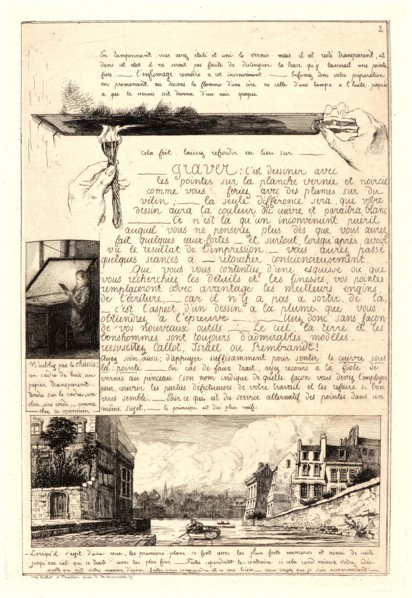 2
En tamponnant vous avez étalé et uni le vernis mais il est resté transparent, et
dans cet état il ne serait pas facile de distinguer la trace qu'y laisserait une pointe
fine — l'enfumage remédie à cet inconvénient. — Enfumez donc votre préparation
en promenant au dessous la flamme d'une cire ou celle d'une lampe à l'huile jusqu'à
ce que le vernis soit devenu d'un noir opaque.
cela fait, laissez refroidir en lieu sûr —
GRAVER: c'est dessiner avec
les pointes sur la planche vernie et noircie
comme vous feriez avec des plumes sur du
vélin; — la seule différence sera que votre
dessin aura la couleur du cuivre et paraîtra blanc
— Ce n'est là qu'un inconvénient puéril
auquel vous ne penserez plus dès que vous aurez
fait quelques eaux-fortes — et surtout lorsqu'après avoir
vu le résultat de l'impression — vous aurez passé
quelques séances à — retoucher consciencieusement.
Que vous vous contentiez d'une esquisse ou que
vous recherchiez les détails et les finesses, vos pointes
rempliront avec avantage les meilleurs engins
de l'écriture — car il n'y a pas à sortir de là,
c'est l'aspect d'un dessin à la plume que vous
obtiendrez à l'épreuve — Usez donc sans façon
de vos nouveaux outils — Le ciel la terre et les
bonshommes sont toujours d'admirables modèles:
ressuscitez Callot, Israël ou Rembrandt!
ayez soin aussi, d'appuyer suffisamment pour sentir le cuivre sous
la pointe — En cas de faux trait, ayez recours à la fiole de
vernis au pinceau (son nom indique de quelle façon vous devez l'employer
pour couvrir les parties défectueuses de votre travail et les refaire si bon
vous semble — Pour ce qui est du service alternatif des pointes dans un
même sujet, — le principe est des plus naïfs:
N'oubliez pas le châssis;
un cadre de bois, un
papier transparent
tendu sur le cadre, un
clou, une corde, — comme
chez ce monsieur
Lorsqu'il s'agit d'une vue, les premiers plans se font avec les plus forts numéros et ainsi de suite
jusqu'au ciel qui se traite avec les plus fins — Faites cependant le contraire si cela rend mieux votre idée